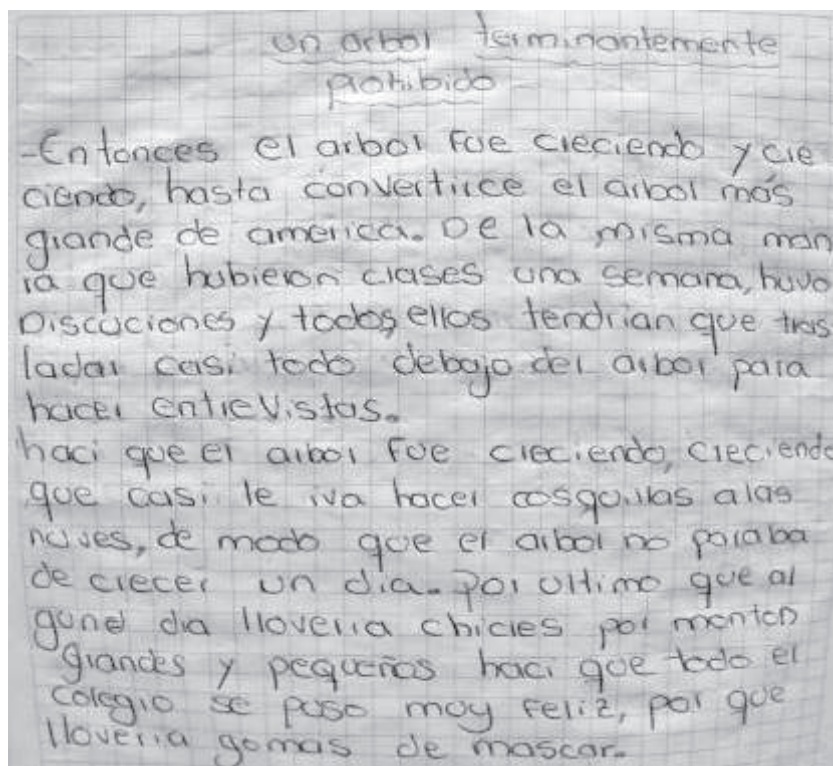 un arbol terminantemente
prohibido
-Entonces el arbol fue creciendo y cre
ciendo, hasta convertirce el arbol más
grande de america. De la misma man
ra que hubieron clases una semana, huvo
Discuciones y todos ellos tendrian que tras
ladar casi todo debajo del arbol para
hacer entrevistas.
haci que el arbol fue creciendo, creciendo
que casi le iva hacer cosquillas alas
nuves, de modo que el arbol no paraba
de crecer un dia. Por ultimo que al
gund dia lloveria chicles por monton
grandes y pequeños haci que todo el
colegio se puso muy feliz, por que
lloveria gomas de mascar.